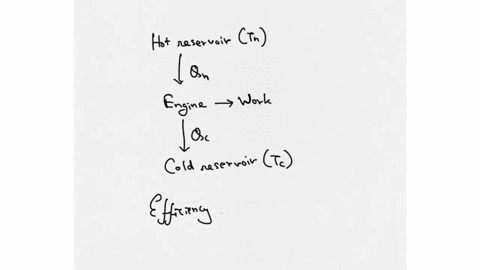 Hot reservoir (Th)
↓ Qh
Engine → Work
↓ Qc
Cold reservoir (Tc)
Efficiency